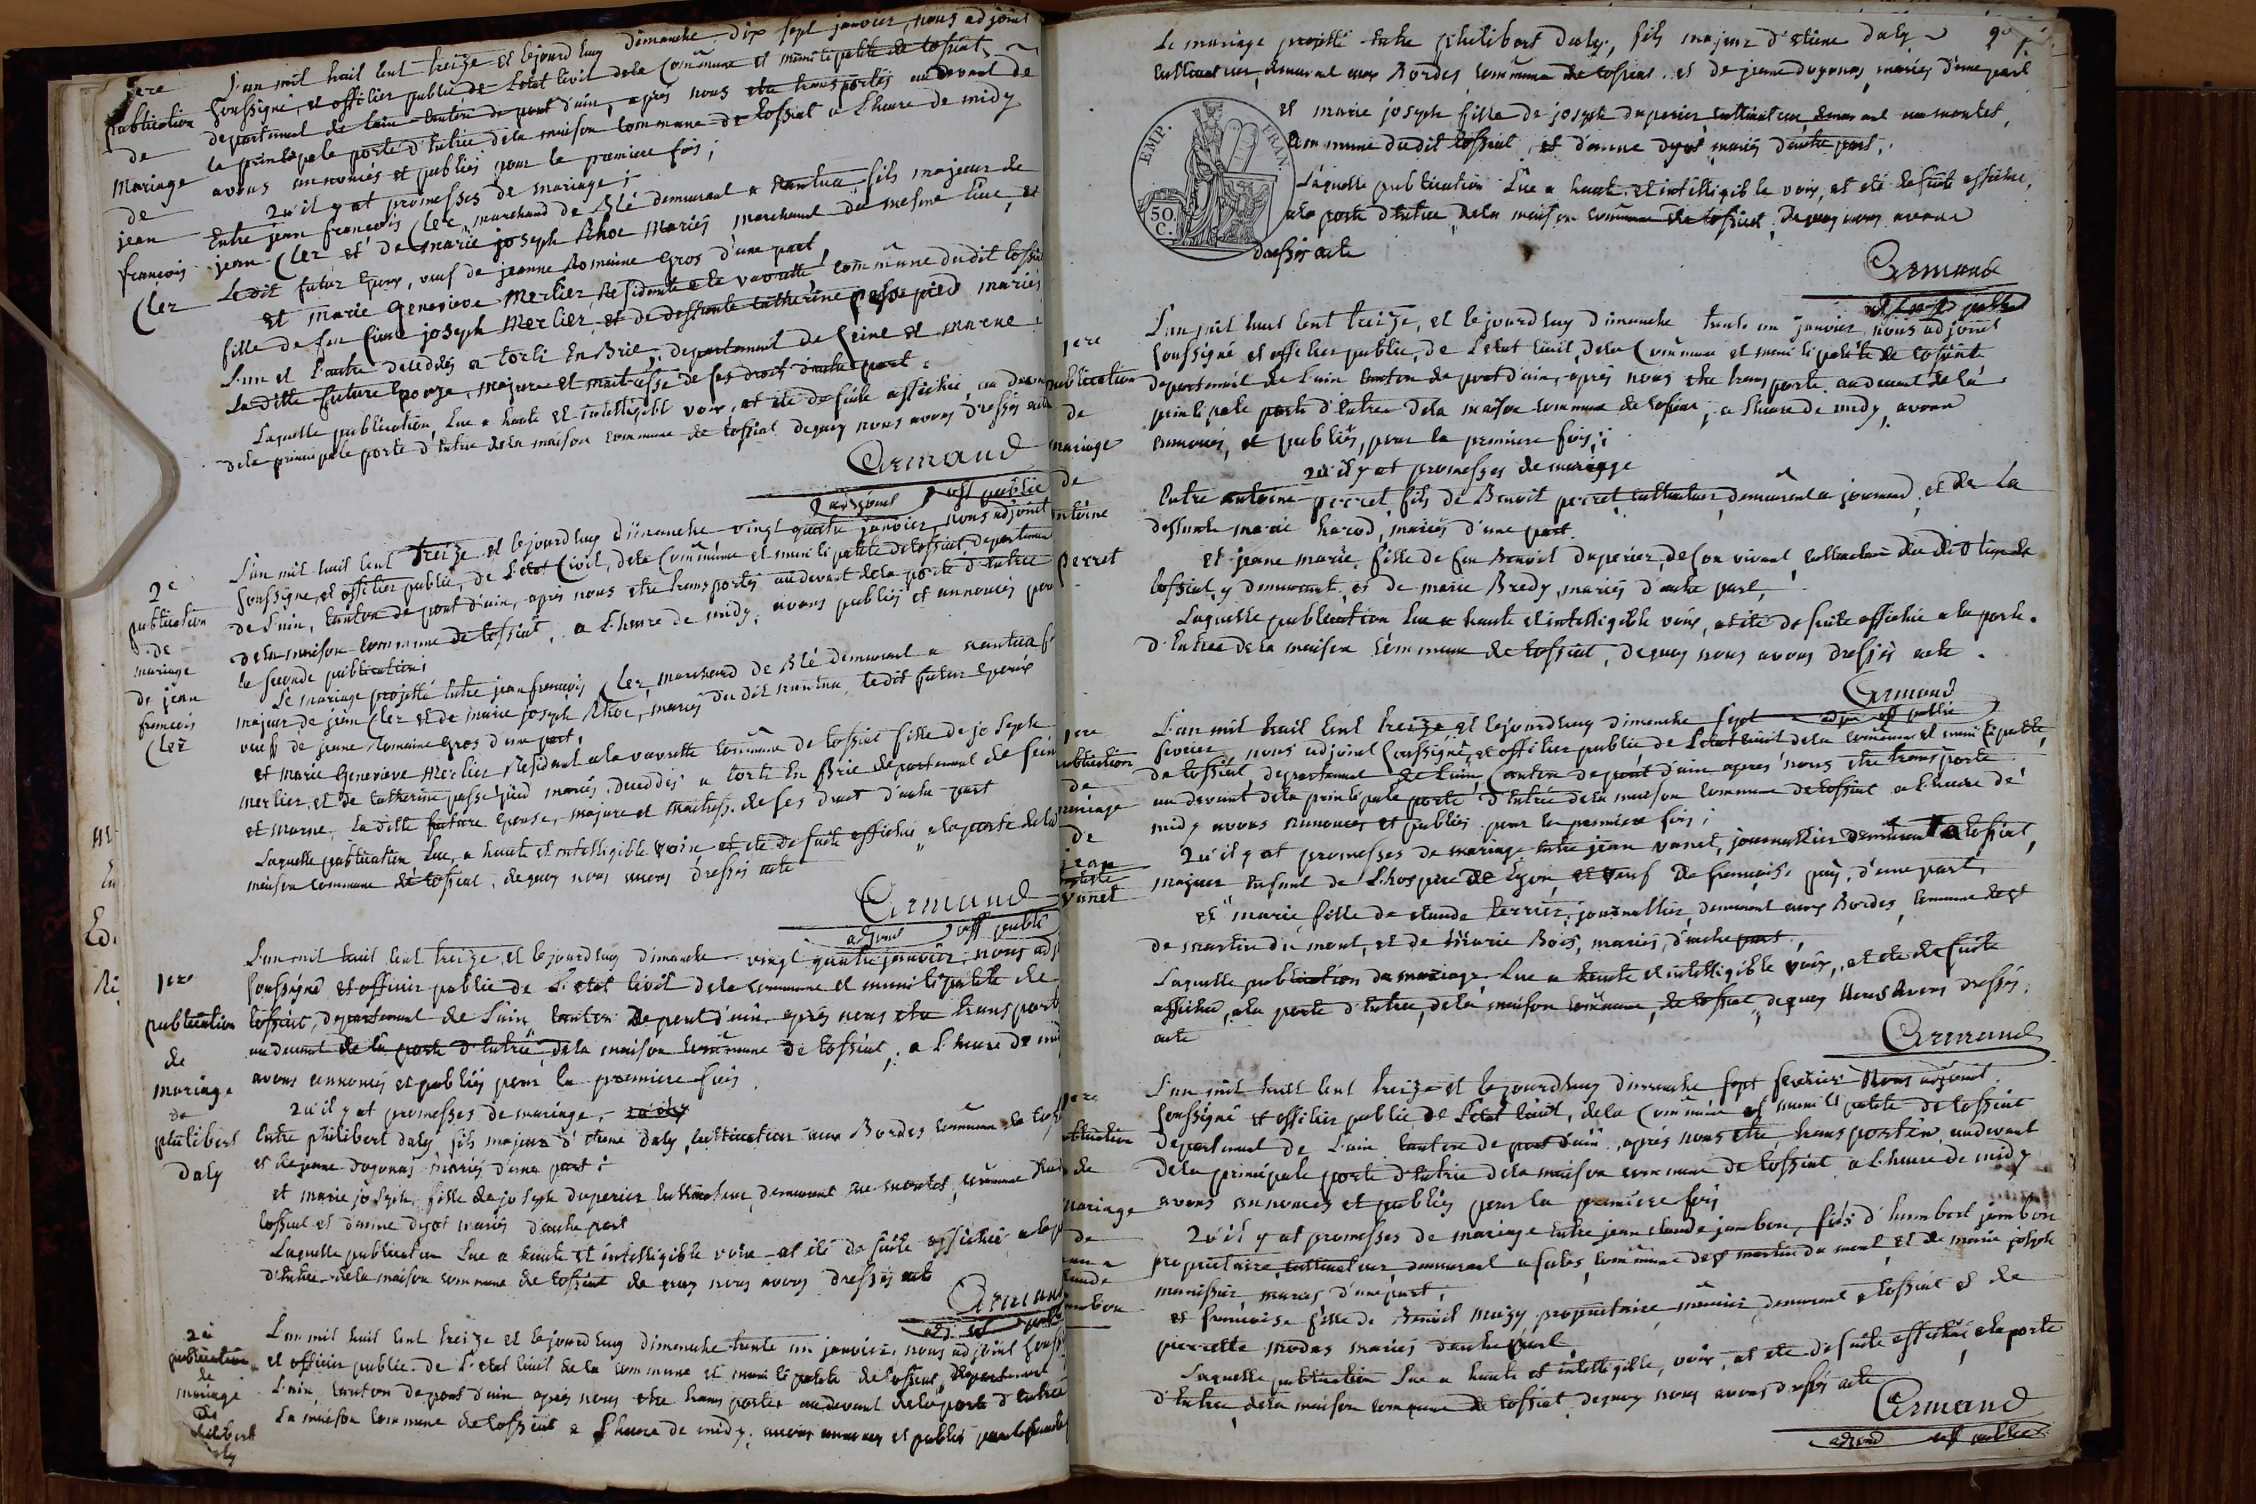 1ere
publication
de
Mariage
de
jean
francois
Cler
L'an mil huit cent treize et lejourdhuy dimanche dix sept janvier, nous adjoint
soussigné, et officier public de l'etat civil dela Commune et municipalité de tossiat
departement de l'ain canton de pont d'ain, après nous etre transportés au devant de
la principale porte d'entrée dela maison commune de tossiat a l'heure de midy
avons annoncés et publiés pour la premiere fois;
qu'il y at promesses de mariage;
Entre jean francois Cler, marchand de Blé demeurant a nantua fils majeur de
jean Cler et de marie joseph Mariés marchand du mesme lieu, et
Ledit futur Epoux, veuf de jeanne Romaine Gros d'une part,
et marie Genevieve Merlier, Residente a la vavrette, commune dudit tossiat
fille de feu joseph Merlier, et de deffunte catherine passe pied mariés
L'un et l'autre decedés a torci En Brie, departement de Seine et marne
La ditte future Epouze, majeure et maitresse de ses droits d'autre part.
Laquelle publication, Lue a haute et intelligible voix, at eté de suite affichée, au devant
dela principale porte d'entrée dela maison commune de tossiat dequoy nous avons dressés acte
Armand
adjoint off public
2e
publication
de
mariage
de jean
francois
Cler
L'an mil huit cent treize et lejourdhuy dimanche vingt quatre janvier, nous adjoint
soussigné, et officier public, de l'etat Civil, dela Commune et municipalité de tossiat, departement
de l'ain, canton de pont d'ain, après nous etre transportés au devant dela porte d'entrée
dela maison commune de tossiat, a l'heure de midy, avons publiés et annoncés pour
la seconde publication;
Le mariage projetté entre jean francois Cler, marchand de Blé demeurant a nantua f
majeur de jean Cler et de marie joseph, mariés du dit nantua, ledit futur epoux
veuf de jeanne Romaine Gros d'une part,
et marie Genevieve Merlier Residant a la vavrette commune de tossiat fille de joseph
merlier, et de catherine passe pied mariés, decedés a torci En Brie departement de sein
et marne, la ditte future epouse, majeure et maitresse de ses droit d'autre part
Laquelle publication Lue, a haute et intelligible voix et eté de suite affichée a la porte dela
maison commune de tossiat, dequoy nous avons dressés acte
Armand
adjoint off public
1ere
publication
de
mariage
de
philibert
daly
L'an mil huit cent treize, et lejourdhuy dimanche vingt quatre janvier, nous adj
soussigné et officier public de L'etat civil dela commune et municipalité de
tossiat, departement de l'ain canton de pont d'ain, après nous etre transport
au devant de la porte d'entrée dela maison commune de tossiat, a l'heure de mid
avons annoncés et publiés pour la premiere fois
qu'il y at promesses de mariage,
Entre philibert daly fils majeur d'etiene daly, cultivateur aux Bordes commune de toss
et de jeanne dugonas mariés d'une part;
et marie joseph, fille de joseph duperier cultivateur, demeurant aux montet, commune dud
tossiat et d'anne dyot mariés d'autre part
Laquelle publication Lue a haute et intelligible voix at eté de suite affichée a la p
d'entrée dela maison commune de tossiat de quoy nous avons dressés acte
Armand
adj. off public
2e
publication
de
mariage
de
philibert
daly
L'an mil huit cent treize et lejourdhuy dimanche trente un janvier, nous adjoint souss
et officier public de L'etat civil dela commune et municipalité de tossiat, departement
L'ain, canton de pont d'ain après nous etre transportés au devant dela porte d'entrée
La maison commune de tossiat a l'heure de midy, avons annoncés et publiés pour la seconde
Le mariage projetté entre philibert daly, fils majeur d'etiene daly
cultivateur, demeurant aux Bordes, commune de tossiat, et de jeanne dugonas, mariés d'une part
et marie joseph fille de joseph duperier, cultivateur demeurant aux montet,
commune dudit tossiat, et d'anne dyot mariés d'autre part,
Laquelle publication Lue a haute et intelligible voix, at eté de suite affichée,
a la porte d'entrée dela maison commune de tossiat, dequoy nous avons
dressés acte
EMP. FRAN.
50. C.
Armand
adjoint off public
1ere
publication
de
mariage
de
antoine
perret
L'an mil huit cent treize, et lejourdhuy dimanche trente un janvier, nous adjoint
soussigné et officier public, de L'etat civil, dela Commune et municipalité de tossiat
departement de l'ain canton de pont d'ain, après nous etre transportés au devant de la
principale porte d'entrée dela maison commune de tossiat, a l'heure de midy, avons
annoncés, et publiés, pour la premiere fois;
qu'il y at promesses de mariage
Entre antoine perret, fils de Benoit perret, cultivateur, demeurant a journand, et de La
deffunte marie harod, mariés d'une part
et jeane marie, fille de feu Benoit duperier, de son vivant, cultivateur du dit lieu de
tossiat, y demeurant, et de marie Bredy, mariés d'autre part,
Laquelle publication Lue a haute et intelligible voix, at eté de suite affichée a la porte
d'entrée dela maison commune de tossiat, dequoy nous avons dressés acte.
Armand
adjoint off public
1ere
publication
de
mariage
de
jean
vanet
L'an mil huit cent treize et lejourdhuy dimanche sept
fevrier, nous adjoint soussigné, et officier public de L'etat civil dela commune et municipalité
de tossiat, departement de l'ain, Canton de pont d'ain après nous etre transporté
au devant dela principale porte d'entrée dela maison commune de tossiat a l'heure de
midy avons annoncés et publiés pour la premiere fois;
qu'il y at promesses de mariage entre jean vanet, journallier demeurant a tossiat,
majeur enfant de L'hospice de Lyon, et veuf de francoise puy, d'une part,
et marie fille de claude terrier, journallier, demeurant aux Bordes, commune de st
de martin du mont, et de marie Bois, mariés, d'autre part,
Laquelle publication de mariage Lue a haute et intelligible voix, at eté de suite
affichée, a la porte d'entrée, dela maison commune, de tossiat, dequoy Nous Avons dressés,
acte
Armand
1ere
publication
de
mariage
de
jean
claude
jambon
L'an mil huit cent treize et lejourdhuy dimanche sept fevrier Nous adjoint
soussigné et officier public de L'etat civil, dela Commune et municipalité de tossiat
departement de L'ain canton de pont d'ain, après nous etre transportés au devant
dela principale porte d'entrée dela maison commune de tossiat a l'heure de midy
avons annoncés et publiés pour la premiere fois
qu'il y at promesses de mariage Entre jean claude jambon, fils d'humbert jambon
propriétaire cultivateur, demeurant a salles, commune de st martin du mont, et de marie joseph
manissier mariés d'une part,
et francoise fille de Benoit mugy, propriétaire meunier demeurant a tossiat et de
pierrette modas mariés d'autre part,
Laquelle publication Lue a haute et intelligible, voix, at eté de suite affichée, a la porte
d'entrée dela maison commune de tossiat dequoy nous avons dressés acte
Armand
adjoint off public